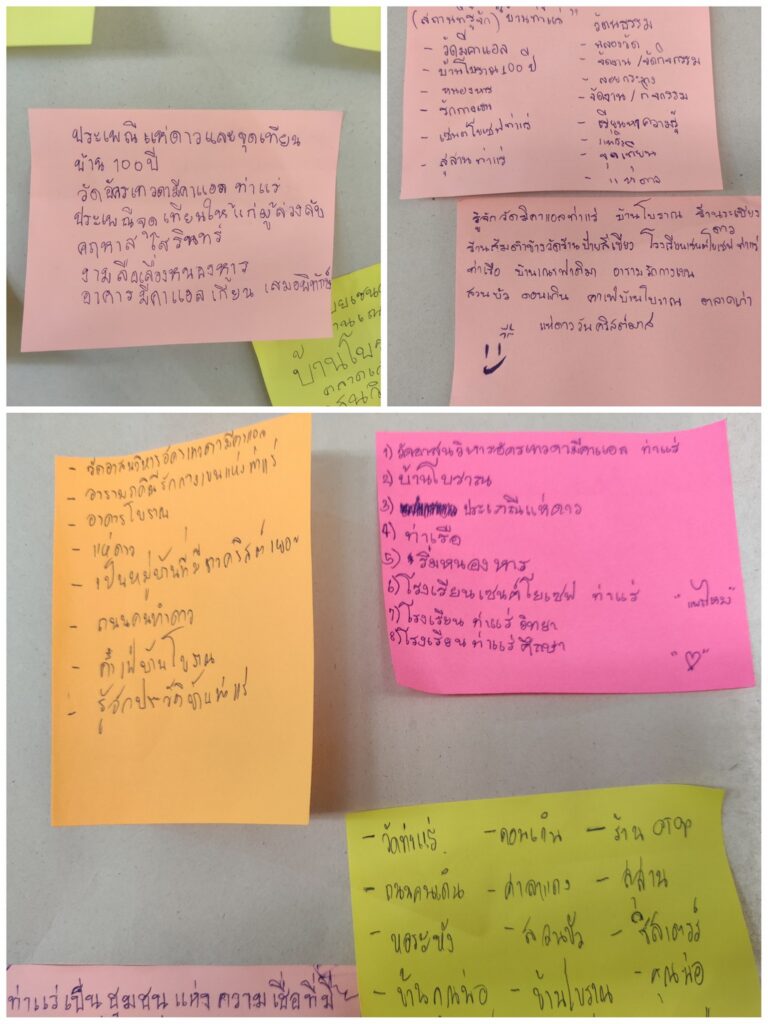 ประเพณีแห่ดาวและจุดเทียน
บ้าน 100 ปี
วัดอัครเทวดามีคาแอล ท่าแร่
ประเพณีจุดเทียนให้แก่ผู้ล่วงลับ
คฤหาสน์โสรินทร์
งามลือเลื่องหนองหาร
อาคารมีคาแอลเกียน เสมอพิทักษ์
บ้านโบ
(สถานที่รู้จัก) บ้านท่าแร่
- วัดมีคาแอล
- บ้านโบราณ 100 ปี
- หนองหาร
- รักกางเขน
- เซนต์โยเซฟท่าแร่
- สุสานท่าแร่
วัฒนธรรม
- ฉลองวัด
- จัดงาน / จัดกิจกรรม
- ลอยกระทง
- จัดงาน / กิจกรรม
- เรียนหาความรู้
- จุดเทียน
- แห่ดาว
รู้จักวัดมีคาแอลท่าแร่ บ้านโบราณ ร้านระเบียงดาว
ร้านส้มตำข้างวัดร้านป้ายสีเขียว โรงเรียนเซนต์โยเซฟ ท่าแร่
ท่าเรือ บ้านเณรฟาติมา อารามรักกางเขน
สวนบัว ดอนเกิน คาเฟ่บ้านโบราณ ตลาดเก่า
แห่ดาววันคริสต์มาส
- วัดอาสนวิหารอัครเทวดามีคาแอล
- อารามภคินีรักกางเขนแห่งท่าแร่
- อาคารโบราณ
- แห่ดาว
- เป็นหมู่บ้านที่มีชาวคริสต์เยอะ
- ถนนคนทำดาว
- คาเฟ่บ้านโบราณ
- รู้จักประวัติบ้านท่าแร่
1) วัดอาสนวิหารอัครเทวดามีคาแอล ท่าแร่
2) บ้านโบราณ
3) ประเภณีแห่ดาว
4) ท่าเรือ
5) ริมหนองหาร
6) โรงเรียนเซนต์โยเซฟ ท่าแร่
7) โรงเรียน ท่าแร่ วิทยา
8) โรงเรียน ท่าแร่ ศึกษา
- วัดท่าแร่ - ดอนเกิน - ร้าน OTOP
- ถนนคนเดิน - ศาลาแดง - สุสาน
- หอระฆัง - สวนบัว - ซิสเตอร์
- บ้านคุณพ่อ - บ้านโบราณ - คุณพ่อ
ท่าแร่เป็นชุมชนแห่งความเชื่อที่มี